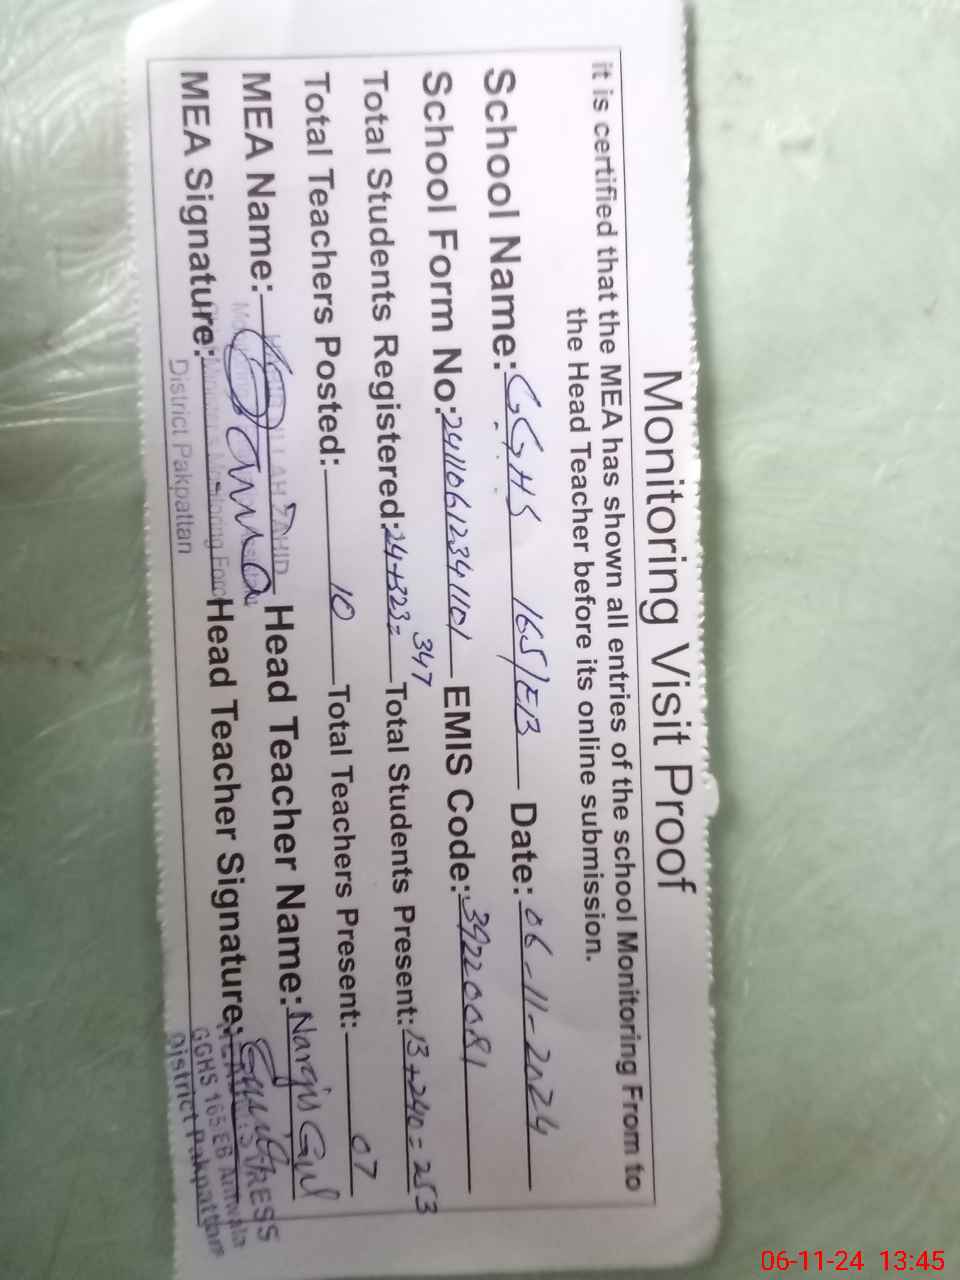 Monitoring Visit Proof
it is certified that the MEA has shown all entries of the school Monitoring From to
the Head Teacher before its online submission.
School Name: GGHS 165/EB Date: 06-11-2024
School Form No: 24110612341101 EMIS Code: 39220081
Total Students Registered: 24+323= 347 Total Students Present: 13+240=253
Total Teachers Posted: 10 Total Teachers Present: 07
MEA Name: ZAHID Head Teacher Name: Nargis Gul
MEA Signature: Monitoring Force Head Teacher Signature:
District Pakpattan
GGHS 165 EB Arifwala
District Pakpattan
06-11-24 13:45